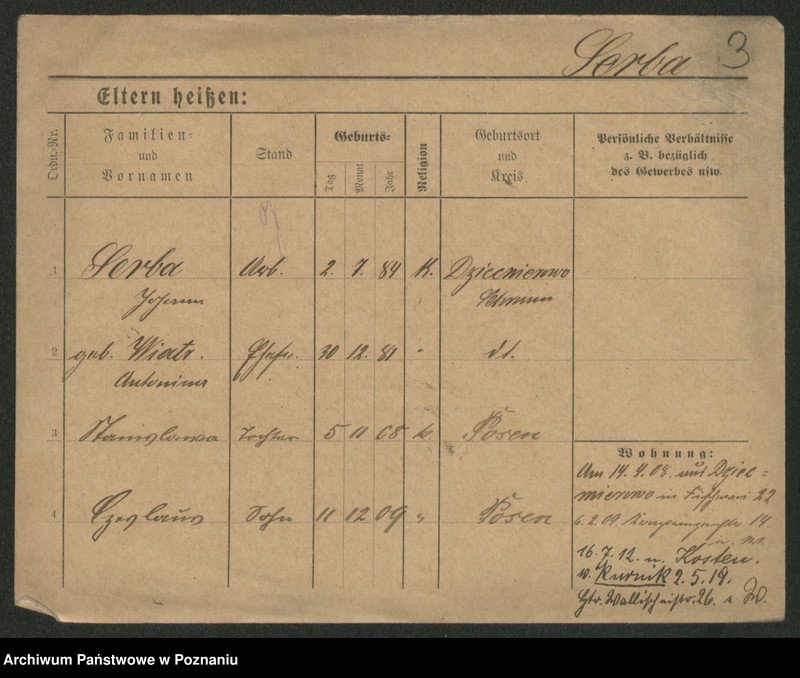 Serba 3
Eltern heißen:
Ordn.-Nr.
Familien-
und
Vornamen
Stand
Geburts-
Tag
Monat
Jahr
Religion
Geburtsort
und
Kreis
Persönliche Verhältnisse
z. B. bezüglich
des Gewerbes usw.
1 Serba Arb. 2. 7. 84 K.
Johann
2 geb. Wiatr. Ehefr. 30 12. 81 " dt.
Antonina
3 Stanislawa Tochter 5 11 08 k Posen
4 Czeslaus Sohn 11 12 09 " Posen
Wohnung:
Am 14. 4. 08. aus
in 22
6. 2. 09 14
16. 7. 12. n. Kosten.
v. Kurnik 2. 5. 19.
Wallischeistr. 26.
Archiwum Państwowe w Poznaniu